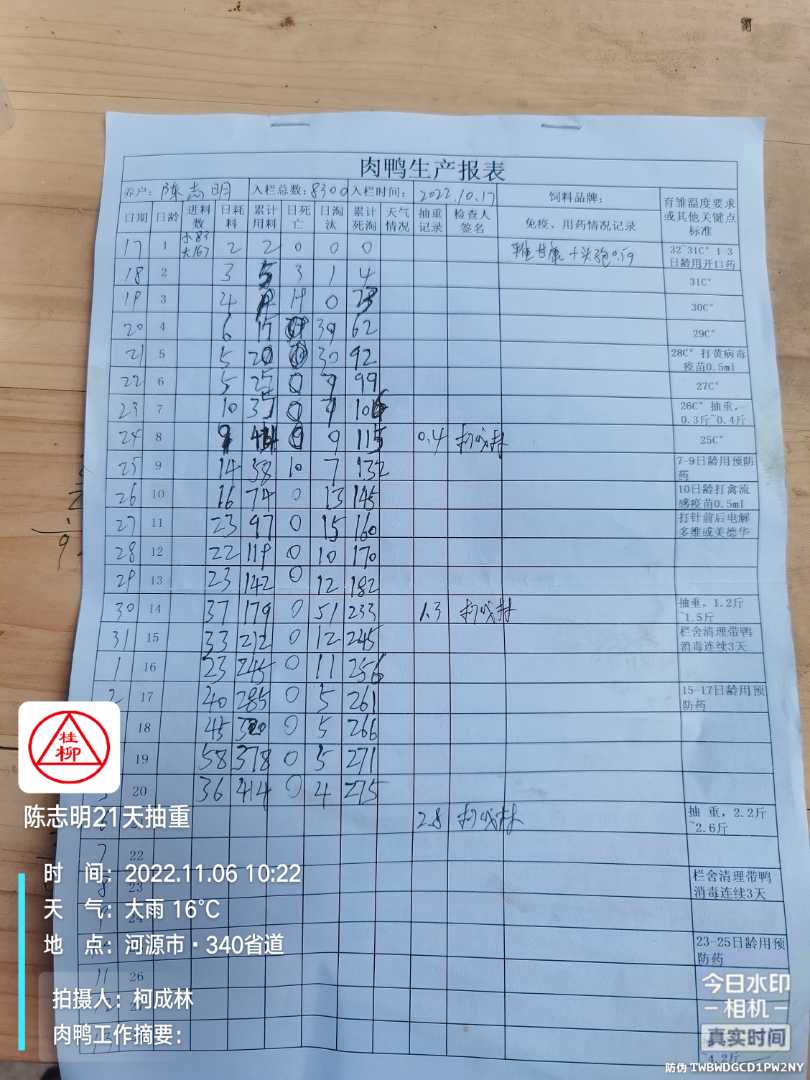 肉鸭生产报表
养户: 陈志明 入栏总数: 8300 入栏时间: 2022.10.17 饲料品牌: 育雏温度要求或其他关键点标准
日期 日龄 进料数 日耗料 累计用料 日死亡 日淘汰 累计死淘 天气情况 抽重记录 检查人签名 免疫、用药情况记录
17 1 2 2 0 0 0 32~31C° 1-3日龄用开口药
18 2 3 5 3 1 4 31C°
19 3 4 0 30C°
20 4 6 39 62 29C°
21 5 5 20 30 92 28C° 打黄病毒疫苗0.5ml
22 6 5 25 0 99 27C°
23 7 10 0 26C° 抽重,0.3斤~0.4斤
24 8 9 115 0.4 25C°
25 9 14 58 10 7 132 7-9日龄用预防药
26 10 16 74 0 13 145 10日龄打禽流感疫苗0.5ml
27 11 23 97 0 15 160 打针前后电解多维或美德华
28 12 22 119 0 10 170
29 13 23 142 0 12 182
30 14 37 179 0 51 233 1.3 抽重, 1.2斤~1.5斤
31 15 33 212 0 12 245 栏舍清理带鸭消毒连续3天
1 16 23 245 0 11 256
2 17 40 285 0 5 261 15-17日龄用预防药
18 45 0 5 266
19 58 378 0 5 271
20 36 414 0 4 275
2.8 抽重, 2.2斤~2.6斤
7 22
8 23 栏舍清理带鸭消毒连续3天
23-25日龄用预防药
11 26
桂柳
陈志明21天抽重
时 间: 2022.11.06 10:22
天 气: 大雨 16℃
地 点: 河源市·340省道
拍摄人: 柯成林
肉鸭工作摘要:
今日水印
-相机-
真实时间
防伪 TWBWDGCD1PW2NY